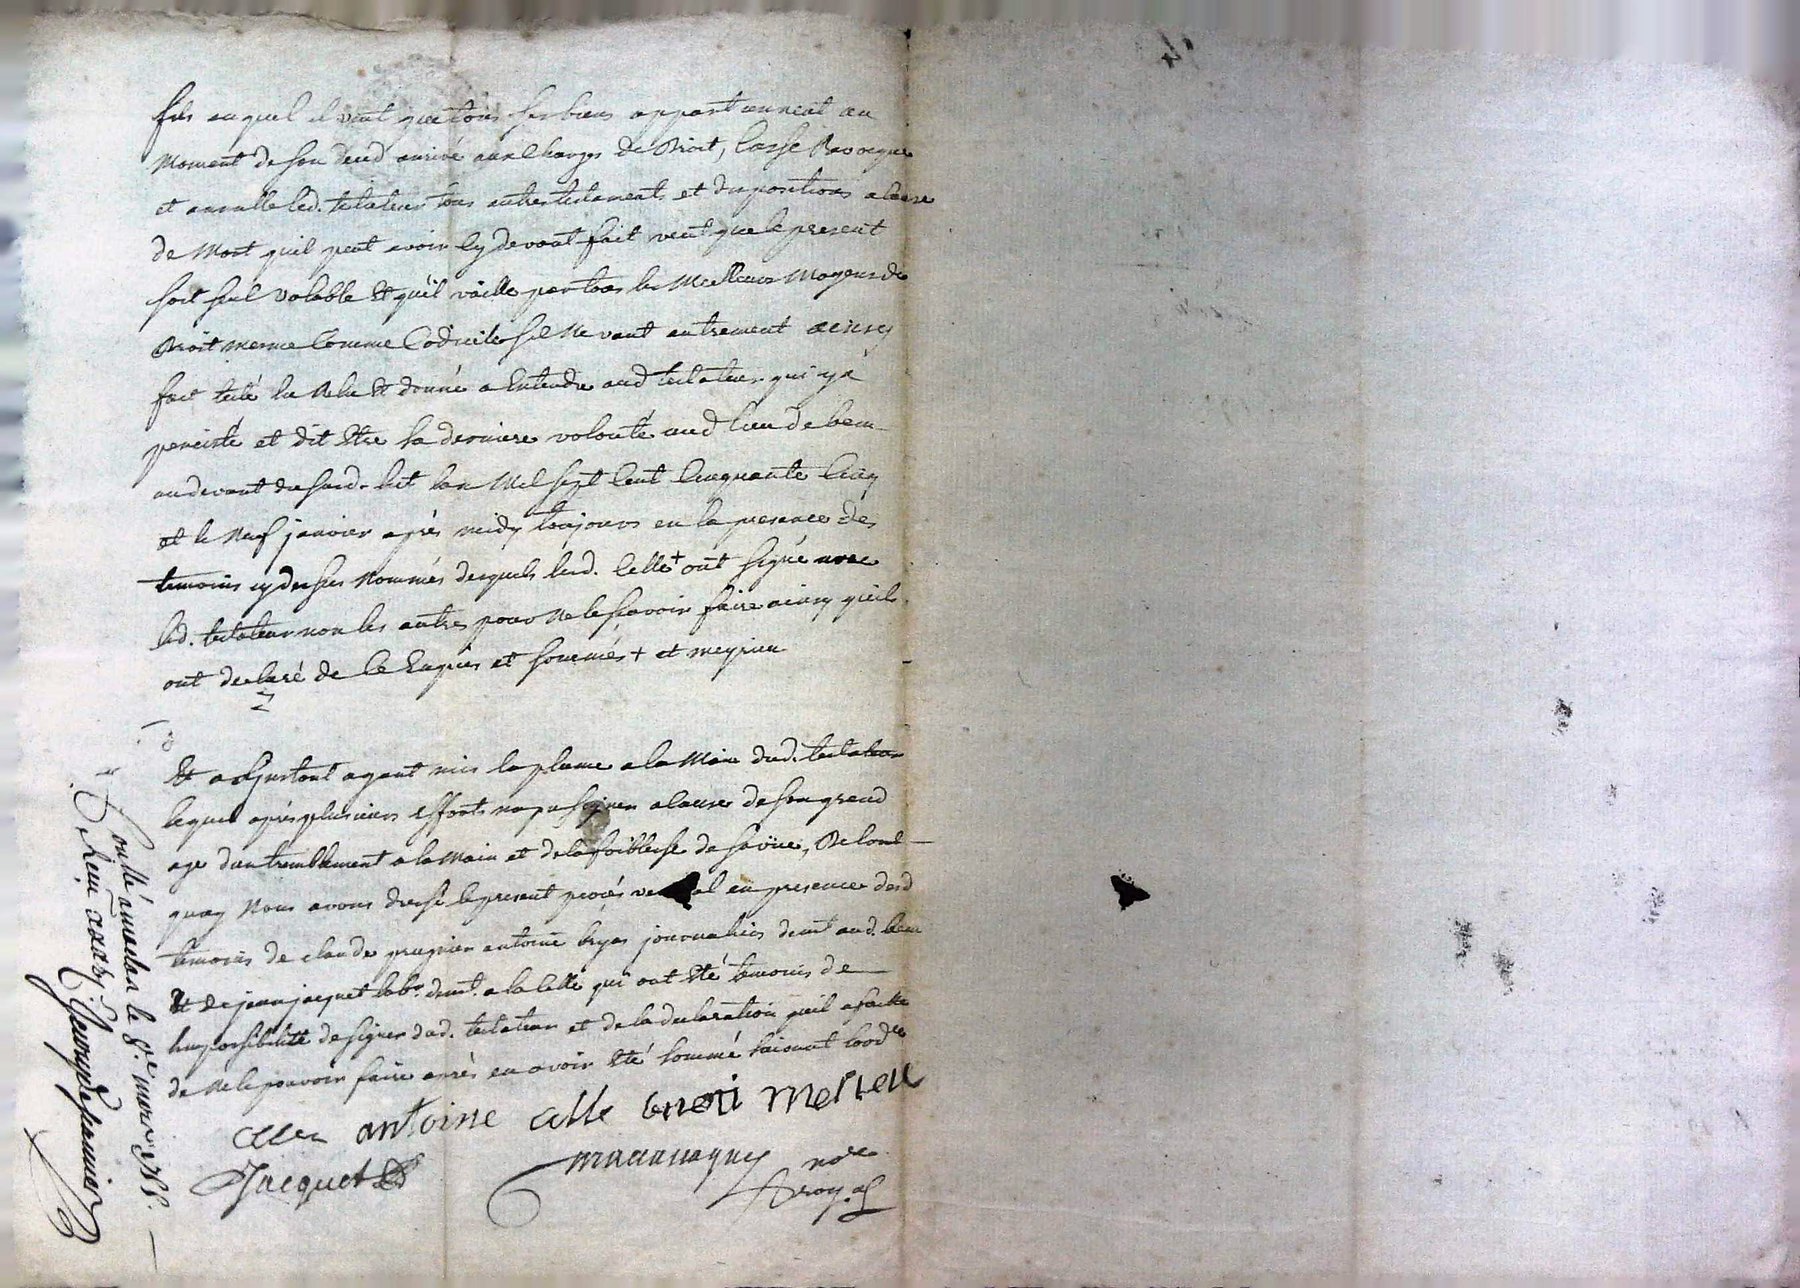 fils auquel il veut que tous ses biens appartiennent au
moment de son deced arrivé aux charges de Droit, Casse Revoque
et annulle led. testateur tous autres testaments et dispositions a cause
de Mort quil peut avoir cy devant fait veut que le present
soit seul valable et quil vaille par tous les Meilleurs Moyens de
Droit meme Comme Codicile sil Ne vaut autrement ainsy
fait testé lu Relu et donné a Entendre aud testateur qui y a
persisté et dit Etre sa derniere volonté aud lieu de
au devant du lit lan Mil sept Cent Cinquante Cinq
et le Neuf janvier après midy toujours en la presence des
temoins cy dessus Nommés desquels lesd. Celle + ont signé avec
led. testateur non les autres pour Ne le sçavoir faire ainsy quils
ont declaré de Ce Enquis et sommés + et meyrieu
Et a Linstant ayant mis la plume a la Main dud. testateur
lequel après plusieurs Efforts na pu signer a Cause de son grand
age dun tremblement a la Main et de la foiblesse de sa vüe, De Conl
quoy Nous avons dressé le present procés verbal en presence desd
temoins de claude antoine journaliers demt aud.
Et de jean jacquet labr. demt. a la Celle qui ont Eté temoins de
Limpossibilité de signer dud. testateur et de la declaration quil a faitte
de Ne le pouvoir faire après en avoir Eté sommé
antoine celle
Jacquet
nore
Controllé le 8e mars 1755.
Reçu